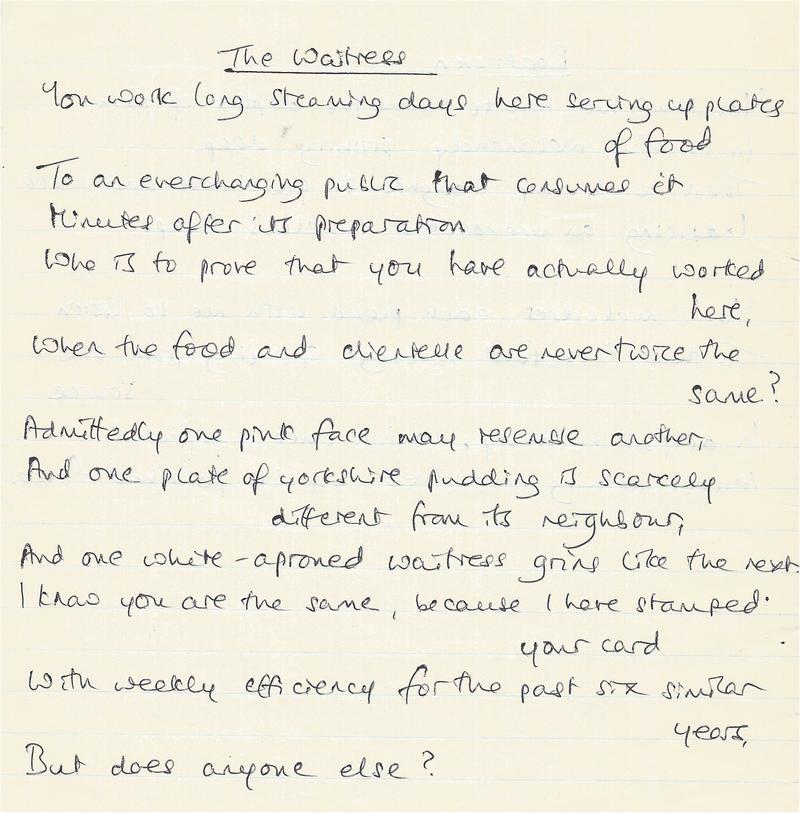 The Waitress
You work long steaming days here serving up plates
of food
To an everchanging public that consumes it
Minutes after its preparation
Who is to prove that you have actually worked
here,
When the food and clientelle are never twice the
same?
Admittedly one pink face may resemble another,
And one plate of yorkshire pudding is scarcely
different from its neighbour,
And one white-aproned waitress grins like the next.
I know you are the same, because I have stamped
your card
With weekly efficiency for the past six similar
years,
But does anyone else?